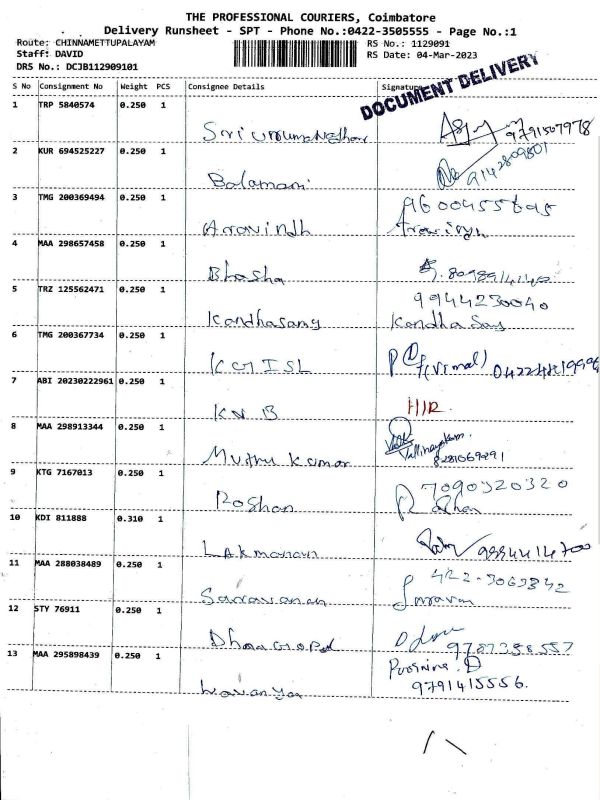 THE PROFESSIONAL COURIERS, Coimbatore
Delivery Runsheet - SPT - Phone No.:0422-3505555 - Page No.:1
Route: CHINNAMETTUPALAYAM
Staff: DAVID
DRS No.: DCJB112909101
RS No.: 1129091
RS Date: 04-Mar-2023
DOCUMENT DELIVERY
S No Consignment No Weight PCS Consignee Details Signature
1 TRP 5840574 0.250 1
2 KUR 694525227 0.250 1 9142809801
Balamani
3 TMG 200369494 0.250 1
Aravindh
4 MAA 298657458 0.250 1
Bhasha
5 TRZ 125562471 0.250 1 9944230040
Kandhasamy Kandha Samy
6 TMG 200367734 0.250 1
KGISL (Vimal)
7 ABI 20230222961 0.250 1
KNB
8 MAA 298913344 0.250 1
Muthu Kumar
9 KTG 7167013 0.250 1 7090320320
Roshan
10 KDI 811888 0.310 1
9884414700
11 MAA 288038489 0.250 1
Saravanan
12 STY 76911 0.250 1
Dhanagopal 9787358557
13 MAA 295898439 0.250 1 Poornima. D
Lavanya 9791415556.